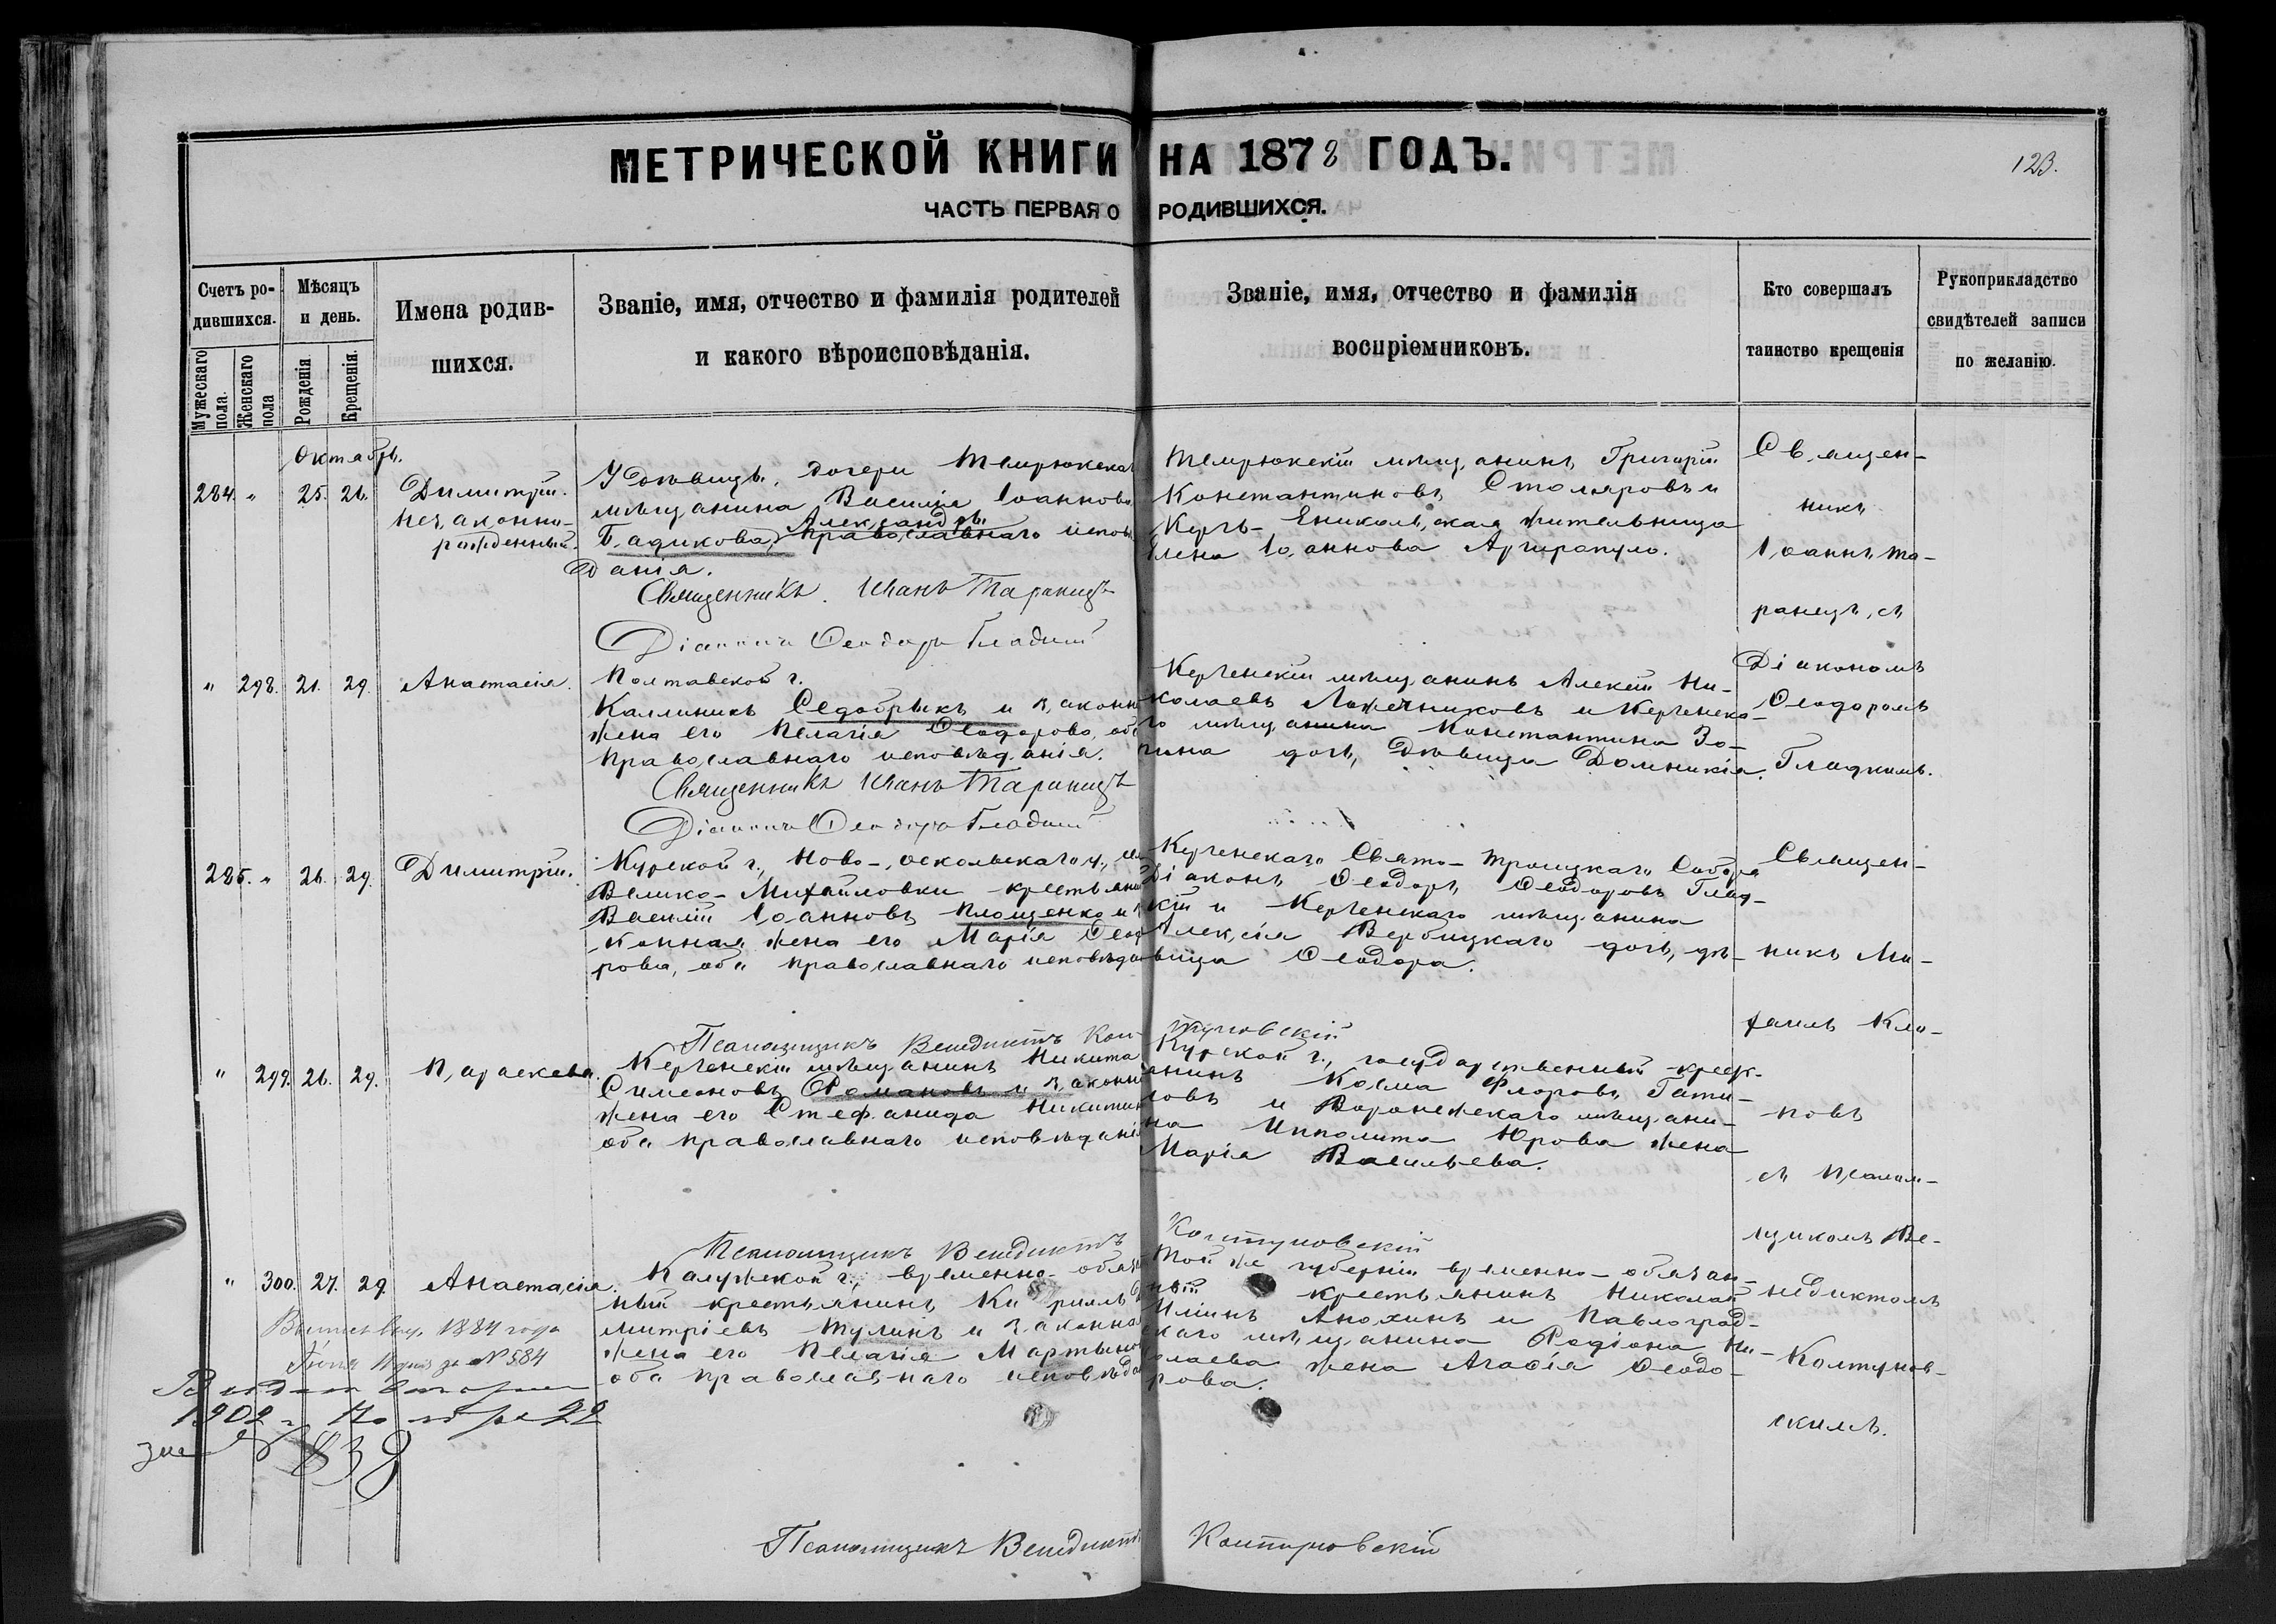 МЕТРИЧЕСКОЙ КНИГИ НА 1878 ГОДЪ.
123.
ЧАСТЬ ПЕРВАЯ О РОДИВШИХСЯ.
Счетъ ро-
дившихся.
Мужескаго пола.
Женскаго пола
Мѣсяцъ
и день.
Рожденія
Крещенія.
Имена родив-
шихся.
Званіе, имя, отчество и фамилія родителей
и какого вѣроисповѣданія.
Званіе, имя, отчество и фамилія
воспріемниковъ.
Кто совершалъ
таинство крещенія
Рукоприкладство
свидѣтелей записи
по желанію.
Октабрь.
284. " 25. 26.
Димитрій.
незаконно-
рожденный.
У дѣвицы, дочери Темрюкскаго
мѣщанина Василія Іоаннова
Александры
Бадикова, православнаго исповѣ
данія.
Священникъ Иванъ Таранецъ
Діаконъ Ѳеодоръ Гладкій
Темрюкскій мѣщанинъ Григорій
Константиновъ Столяровъ и
Керчь-Еникольская жительница
Елена Іоаннова Аргиропуло.
Священ-
никъ
Іоаннъ Та-
ранецъ, съ
Діакономъ
Ѳеодоромъ
Гладкимъ.
" 298. 21. 29.
Анастасія.
Полтавской г.
Каллиникъ Седобрыкъ и законн
жена его Пелагія Ѳеодорова, оба
православнаго исповѣданія.
Священникъ Иванъ Таранецъ
Діаконъ Ѳеодоръ Гладкій
Керченскій мѣщанинъ Алексій Ни-
колаевъ и Керченска-
го мѣщанина Константина Зо-
пина дочь, дѣвица Домникія.
285. " 26. 29.
Димитрій.
Курской г., Ново-оскольскаго у.,
Велико-Михайловки крестьяни
Василій Іоанновъ Площенко и
конная жена его Марія Ѳеод
рова, оба православнаго исповѣда
Псаломщикъ Венедиктъ Колтуновскій
Керченскаго Свято-Троицкаго Собора
Діаконъ Ѳеодоръ Ѳеодоровъ Глад-
кій и Керченскаго мѣщанина
Алексія Вербицкаго дочь, дѣ-
вица Ѳеодора.
Священ-
никъ Ми-
хаилъ Кли-
повъ
съ псалом-
щикомъ Ве-
недиктомъ
Колтунов-
скимъ.
" 299. 26. 29.
Параскева.
Керченскій мѣщанинъ Никита
Симеоновъ Романовъ и законн
жена его Стефанида Никитин
оба православнаго исповѣданія
Псаломщикъ Венедиктъ Колтуновскій
Курской г., государственный крест-
янинъ Косма Флоровъ Гати-
ловъ и Воронежскаго мѣщани-
на Ипполита Юрова жена
Марія Васильева.
" 300. 27. 29.
Анастасія.
Калужской г., временно-обяз
ный крестьянинъ Кириллъ Д
митріевъ Тулинъ и законна
жена его Пелагія Мартынов
оба православнаго исповѣда
Той же губерніи временно-обязан-
ный крестьянинъ Николай
Иліинъ Анохинъ и Павлоград-
скаго мѣщанина Родіона Ни-
колаева жена Агафія Ѳеодо-
рова.
1884 года
за № 584
1902 г. 22
за № 838
Псаломщикъ Венедиктъ Колтуновскій